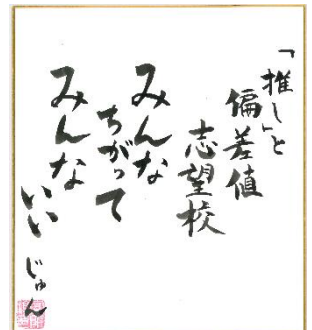 「推し」と
偏差値
志望校
みんな
ちがって
みんな
いい
じゅん